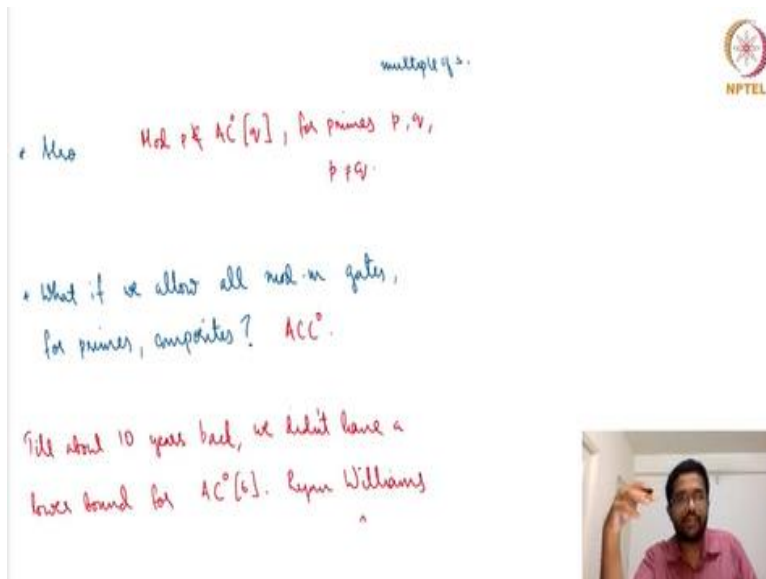 multiple q's.
NPTEL
* Also Mod p ∉ AC⁰[q], for primes p, q,
p ≠ q.
* What if we allow all mod-m gates,
for primes, composites? ACC⁰.
Till about 10 years back, we didn't have a
lower bound for AC⁰[6]. Ryan Williams
^